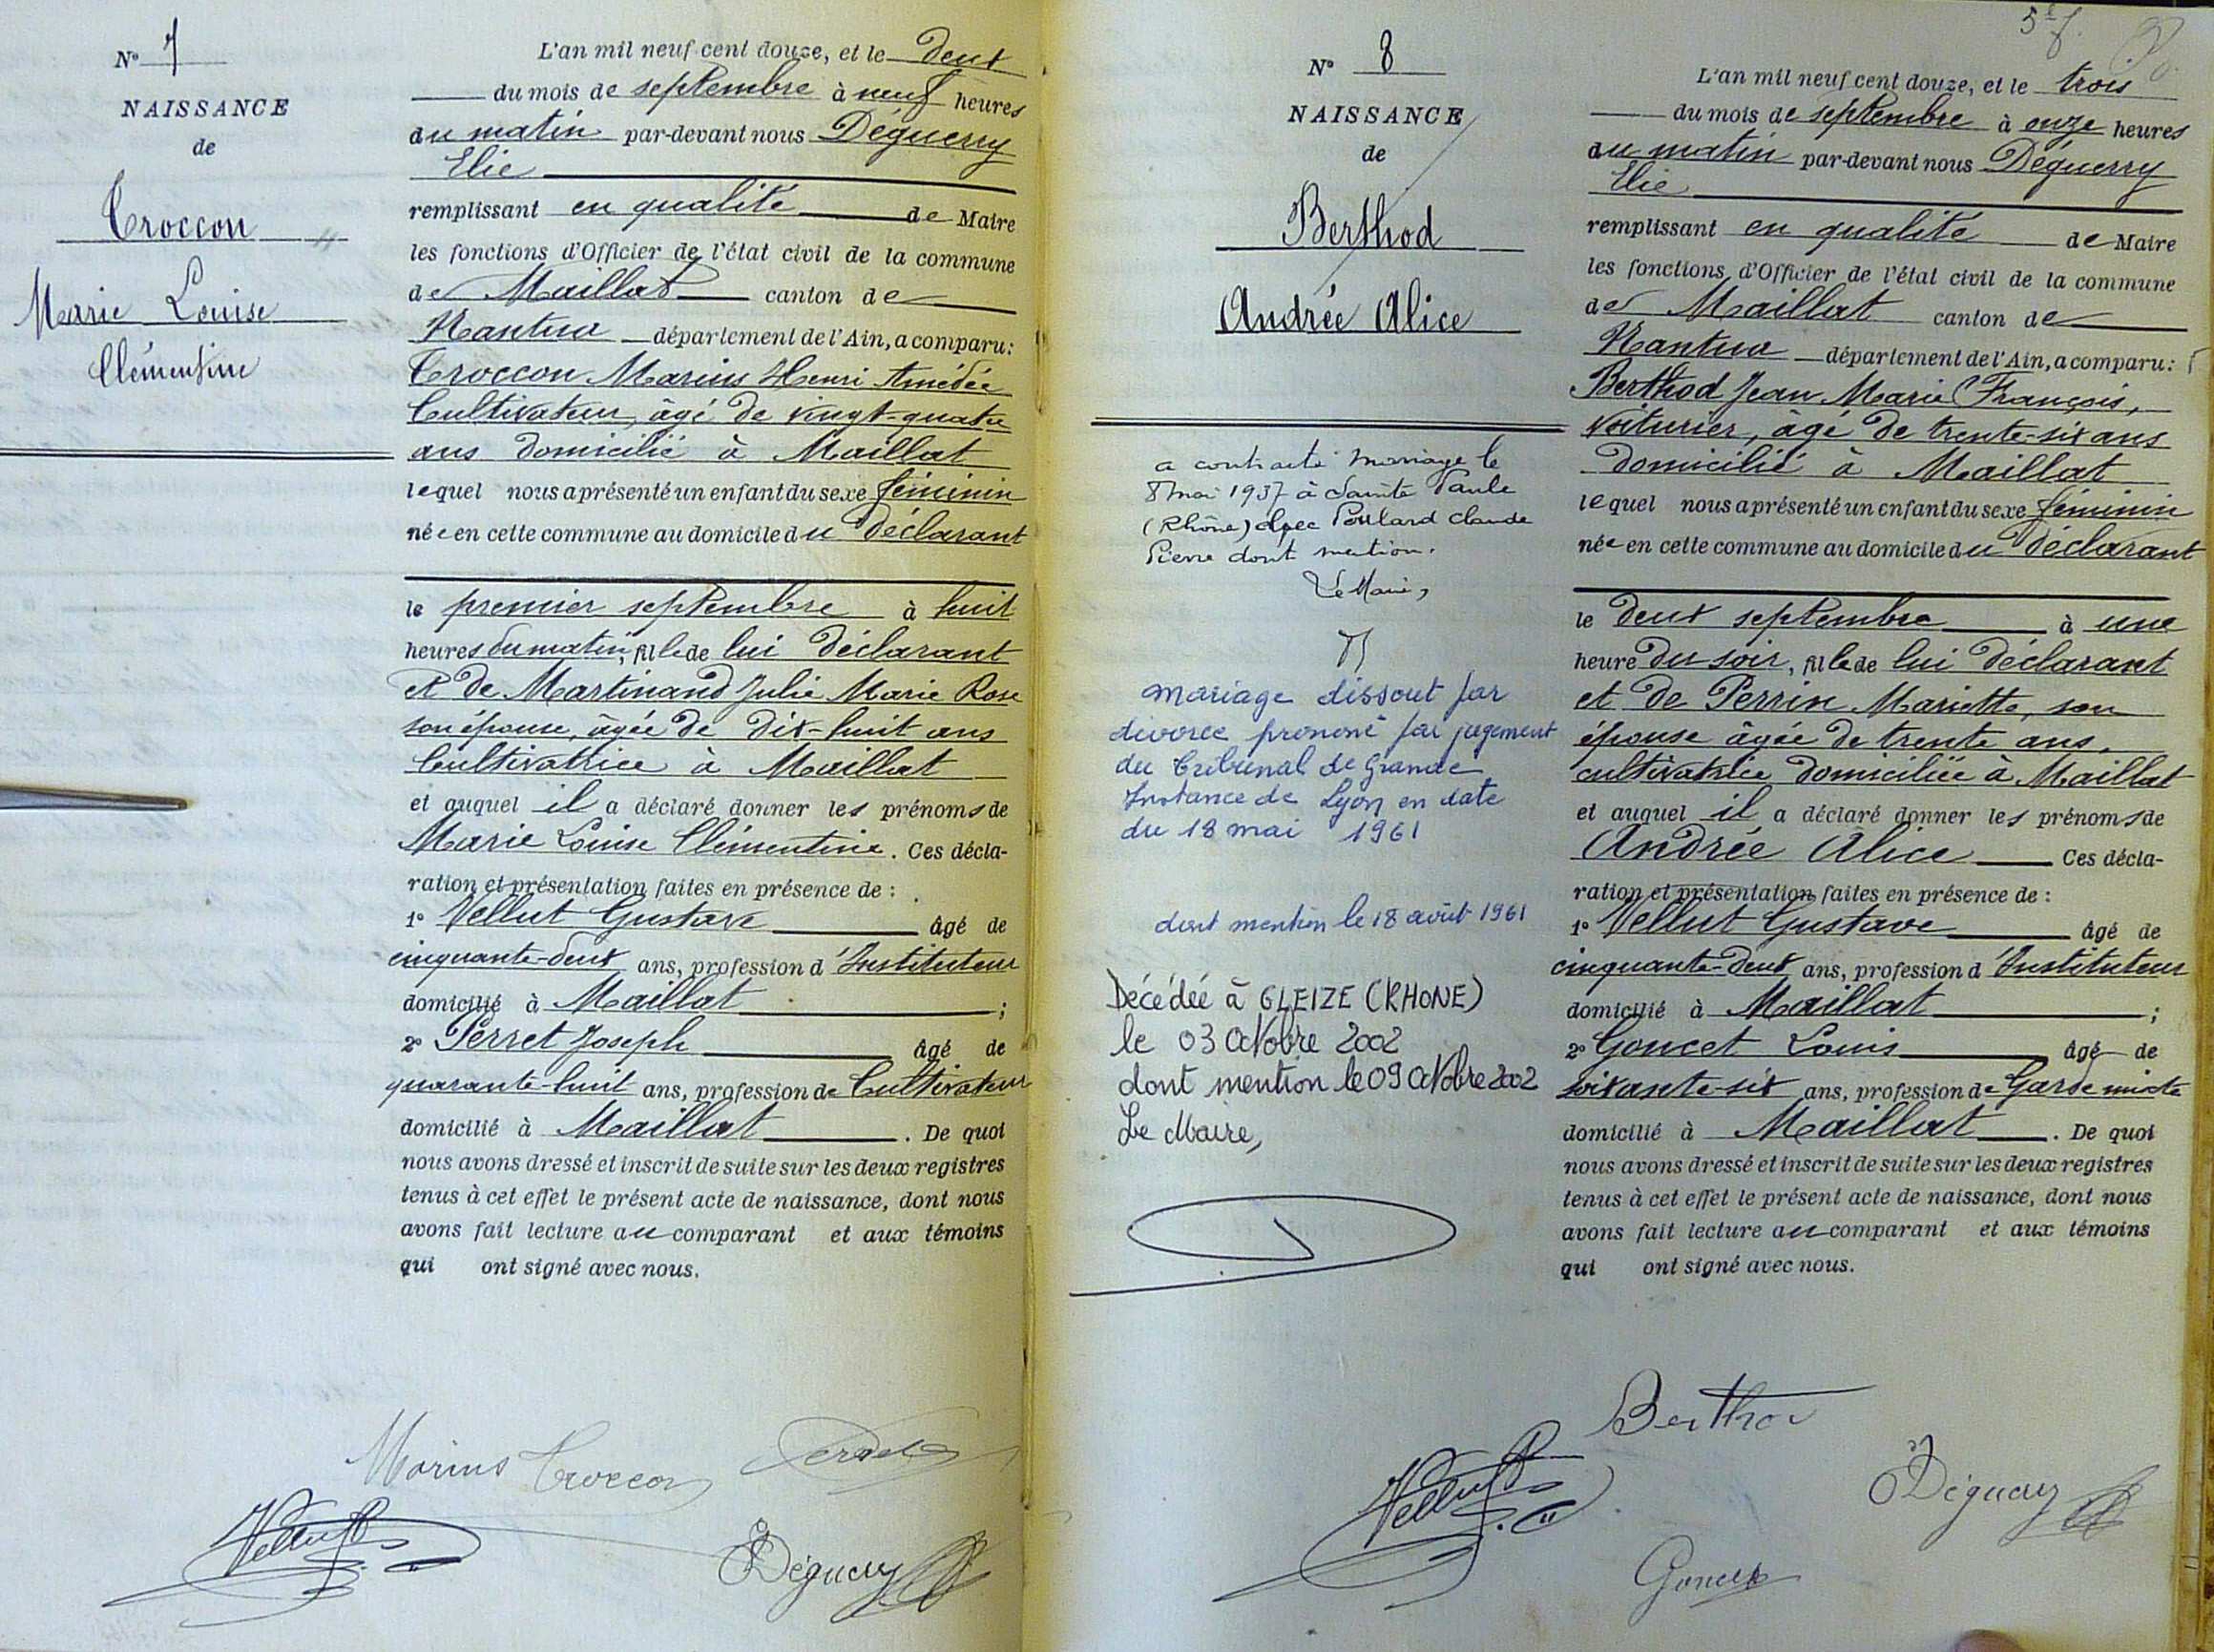 N° 7
NAISSANCE
de
Croccon
Marie Louise
Clémentine
L'an mil neuf cent douze, et le deux
du mois de septembre à neuf heures
du matin par-devant nous Déguerry
Elie
remplissant en qualité de Maire
les fonctions d'Officier de l'état civil de la commune
de Maillat canton de
Nantua département de l'Ain, a comparu:
Croccon Marius Henri Amédée
Cultivateur, âgé de vingt-quatre
ans domicilié à Maillat
lequel nous a présenté un enfant du sexe féminin
née en cette commune au domicile du déclarant
le premier septembre à huit
heures du matin, fille de lui déclarant
et de Martinand Julie Marie Rose
son épouse, âgée de dix-huit ans
Cultivatrice à Maillat
et auquel il a déclaré donner les prénoms de
Marie Louise Clémentine. Ces décla-
ration et présentation faites en présence de :
1° Vellut Gustave âgé de
cinquante-deux ans, profession d'Instituteur
domicilié à Maillat ;
2° Perret Joseph âgé de
quarante-huit ans, profession de Cultivateur
domicilié à Maillat. De quoi
nous avons dressé et inscrit de suite sur les deux registres
tenus à cet effet le présent acte de naissance, dont nous
avons fait lecture au comparant et aux témoins
qui ont signé avec nous.
Marius Croccon Perret
Vellut
Déguerry
5e f.
N° 8
NAISSANCE
de
Berthod
Andrée Alice
a contracté mariage le
8 mai 1937 à Sainte Paule
(Rhône) avec Pollard Claude
Pierre dont mention.
Le Maire,
Mariage dissout par
divorce prononé par jugement
du Tribunal de Grande
Instance de Lyon en date
du 18 mai 1961
dont mention le 18 août 1961
Décédée à GLEIZE (RHONE)
le 03 Octobre 2002
dont mention le 09 Octobre 2002
Le Maire,
L'an mil neuf cent douze, et le trois
du mois de septembre à onze heures
du matin par-devant nous Déguerry
Elie
remplissant en qualité de Maire
les fonctions d'Officier de l'état civil de la commune
de Maillat canton de
Nantua département de l'Ain, a comparu:
Berthod Jean Marie François,
Voiturier, âgé de trente-six ans
domicilié à Maillat
lequel nous a présenté un enfant du sexe féminin
née en cette commune au domicile du déclarant
le deux septembre à une
heure du soir, fille de lui déclarant
et de Perrin Mariette, son
épouse âgée de trente ans,
cultivatrice domiciliée à Maillat
et auquel il a déclaré donner les prénoms de
Andrée Alice Ces décla-
ration et présentation faites en présence de :
1° Vellut Gustave âgé de
cinquante-deux ans, profession d'Instituteur
domicilié à Maillat ;
2° Goncet Louis âgé de
soixante-six ans, profession de Garde mixte
domicilié à Maillat. De quoi
nous avons dressé et inscrit de suite sur les deux registres
tenus à cet effet le présent acte de naissance, dont nous
avons fait lecture au comparant et aux témoins
qui ont signé avec nous.
Berthod
Vellut
Déguerry
Goncet